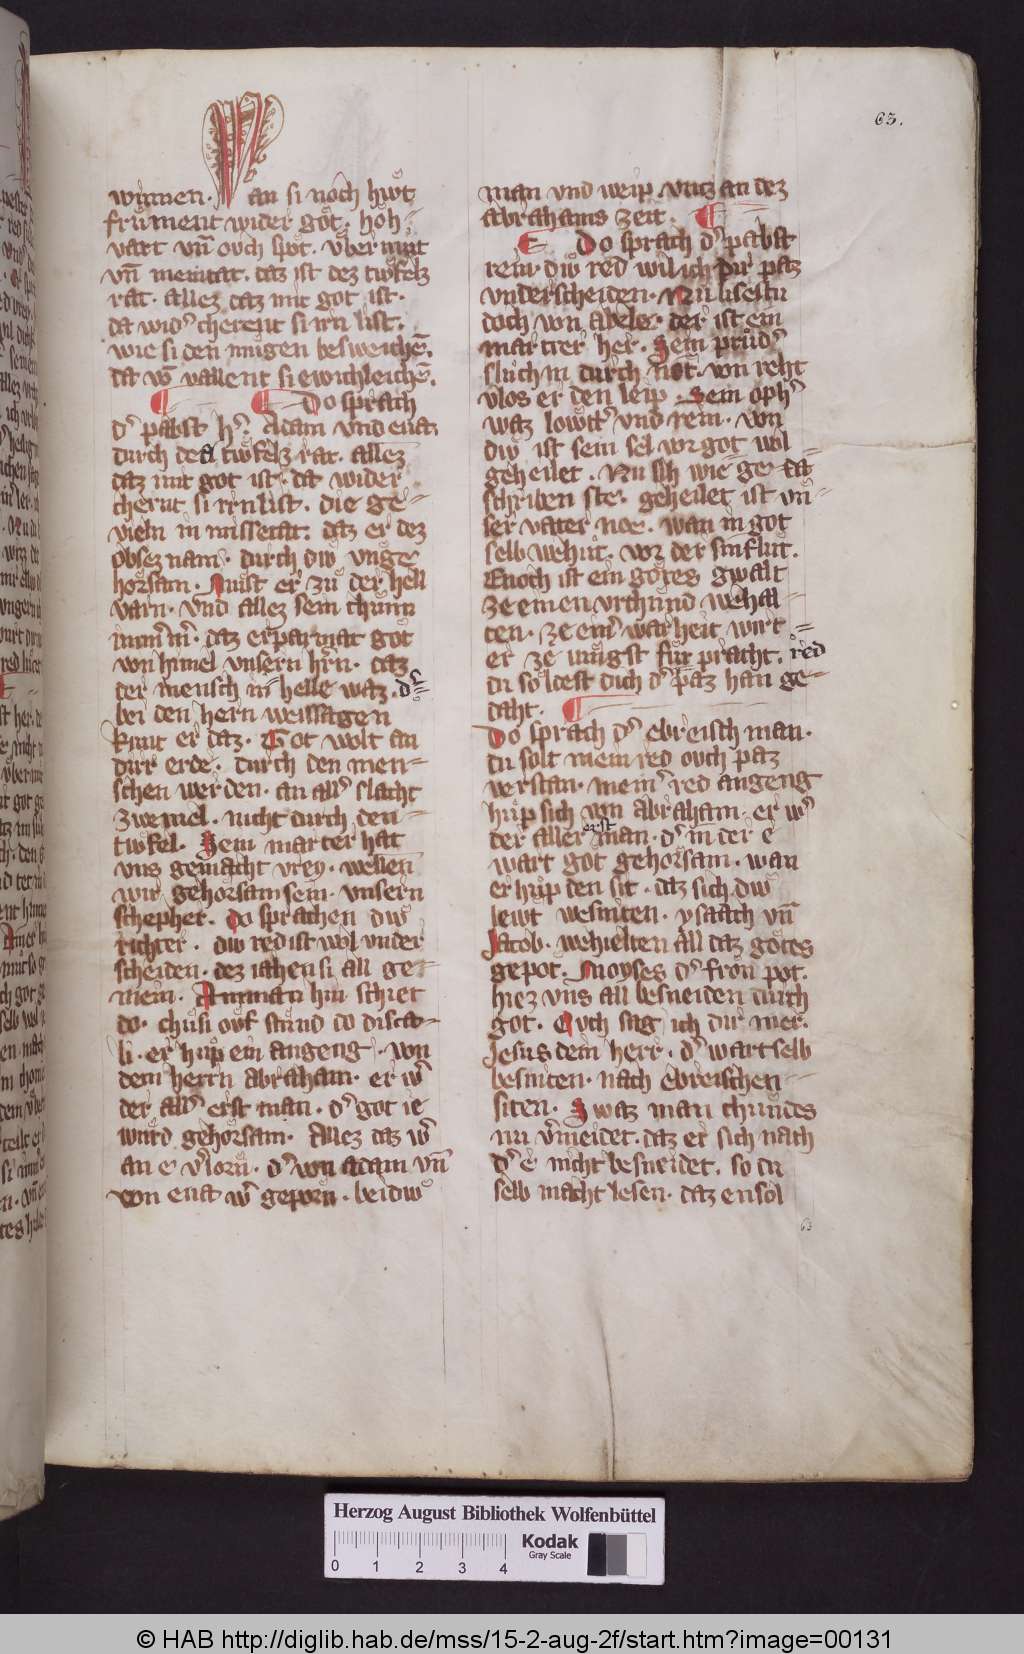 63.
winnen. Wan si noch hwͦt
frument wider got. hoh=
vart vn̄ ovch spot. vͤber mut
vn̄ meintat. daz ist dez twͤfelz
rat. allez daz mit got ist.
da wid᾽ cherent si irn list.
wie si den mugen besweichē.
da vō vallent si ewichleichē.
Do sprach
d᾽ pabst h᾽. Adam vnd eua
durch des twfelz rat. allez
daz mit got ist. da wider
chernt si irn list. die ge=
vieln in missetat. daz er dez
obsez nam. durch diw vnge
horsam. Must er zuͦ der hell
varn. vnd allez sein chunn
im᾽m᾽. daz erparmat got
von himel vnsern h᾽rn. daz
der mensch in helle waz. d᾽=
bei den hern weissagen
kunt er daz. Got wolt an
dirr erde. durch den men=
schen werden. an all᾽ slacht
zweinel. nicht durch den=
twfel. Sein marter hat
vns gemacht vrey. wellen
wir gehorsam sein. vnsern
schepher. Do sprachen diw
richter. diw red ist wol vnder
scheiden. dez iahen si all ge=
mein. Amman hin schiet
do. chusi ovf stuͦnd do disca=
li. er huͦp ein angeng. von
dem herrn Abraham. er w᾽
der all᾽ erst man. d᾽ got ie
wurd gehorsam. Allez daz w᾽
an e v᾽lorn. d᾽ von adam vn̄
von eua w᾽ geporn. beidiw
man vnd weip. vntz an dez
abrahams zeit.
Do sprach d᾽ pabst
rein. diw red wil ich dir paz
vnderscheiden. Nu lisestu
doch von Abele. der ist ein
martrer her. Sein pruͦd᾽
sluͦch in durch not. von reht
vlos er den leip. Sein oph᾽
waz lowtt᾽ vnd rein. von
diw ist sein sel vor got wol
geheilet. Nu sih wie ge da
schriben ste. geheilet ist vn=
ser vater noe. wan in got
selb wehuͦt. vor der sinflut.
Enoch ist ein gotes gwalt
ze einen vrchund wehal=
ten. ze ein᾽ warheit wirt=
er ze iungst fuͤr pracht. red
du soldest dich d᾽ paz han ge=
daht.
Do sprach d᾽ ebreisch man.
du solt mein red ovch paz
verstan. mein᾽ red angeng
huͦp sich von abraham. er w᾽
der aller erst man. d᾽ in der e
wart got gehorsam. wan
er huͦp den sit. daz sich diw
lewt wesniten. ysaach vn̄
Jacob. wehielten all daz gotes
gepot. Moyses d᾽ fron pot.
hiez vns all besneiden durch
got. Ovch sag ich dir mer.
Jesus dein herr. d᾽ wart selb
besniten. nach ebreischen=
siten. Swaz man chundes
nu v᾽meidet. daz er sich nach
d᾽ e nicht besneidet. so du
selb macht lesen. daz en sol
63
Herzog August Bibliothek Wolfenbüttel
0 1 2 3 4
Kodak
Gray Scale
© HAB http://diglib.hab.de/mss/15-2-aug-2f/start.htm?image=00131